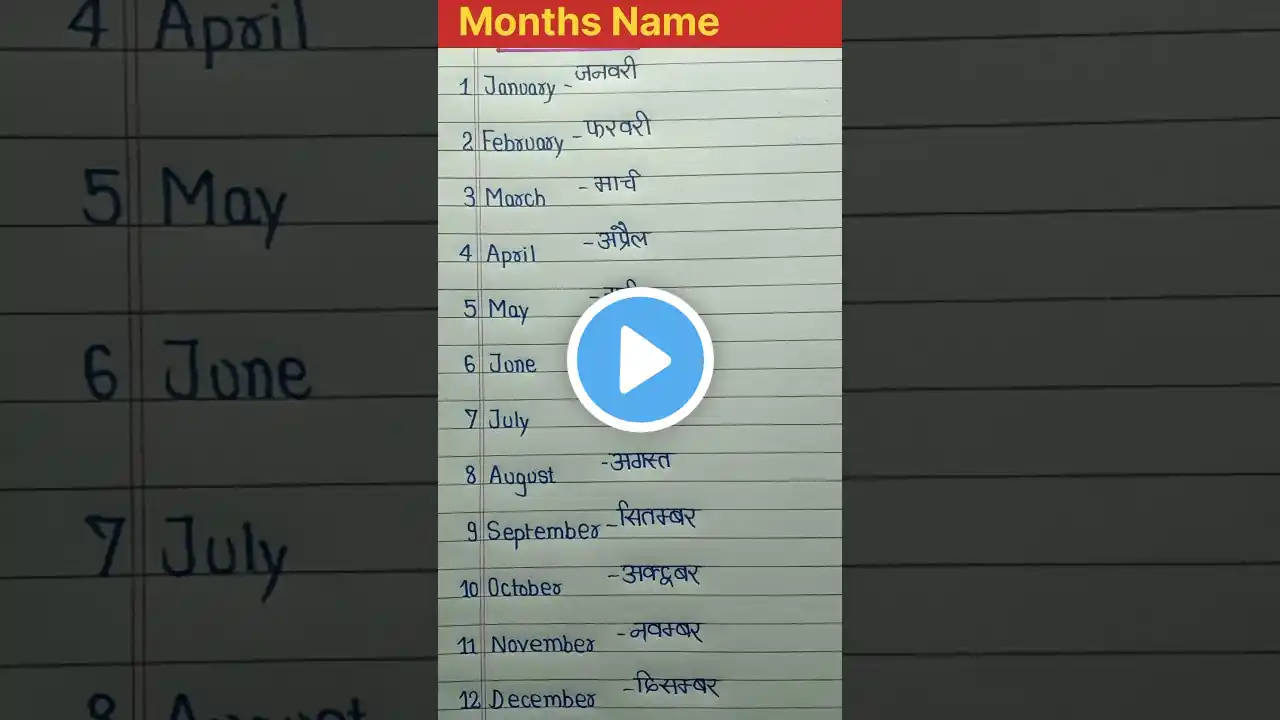 Months Name
1 January - जनवरी
2 February - फरवरी
3 March - मार्च
4 April - अप्रैल
5 May -
6 June
7 July
8 August - अगस्त
9 September - सितम्बर
10 October - अक्टूबर
11 November - नवम्बर
12 December - दिसम्बर
4 April
5 May
6 June
7 July
8 August